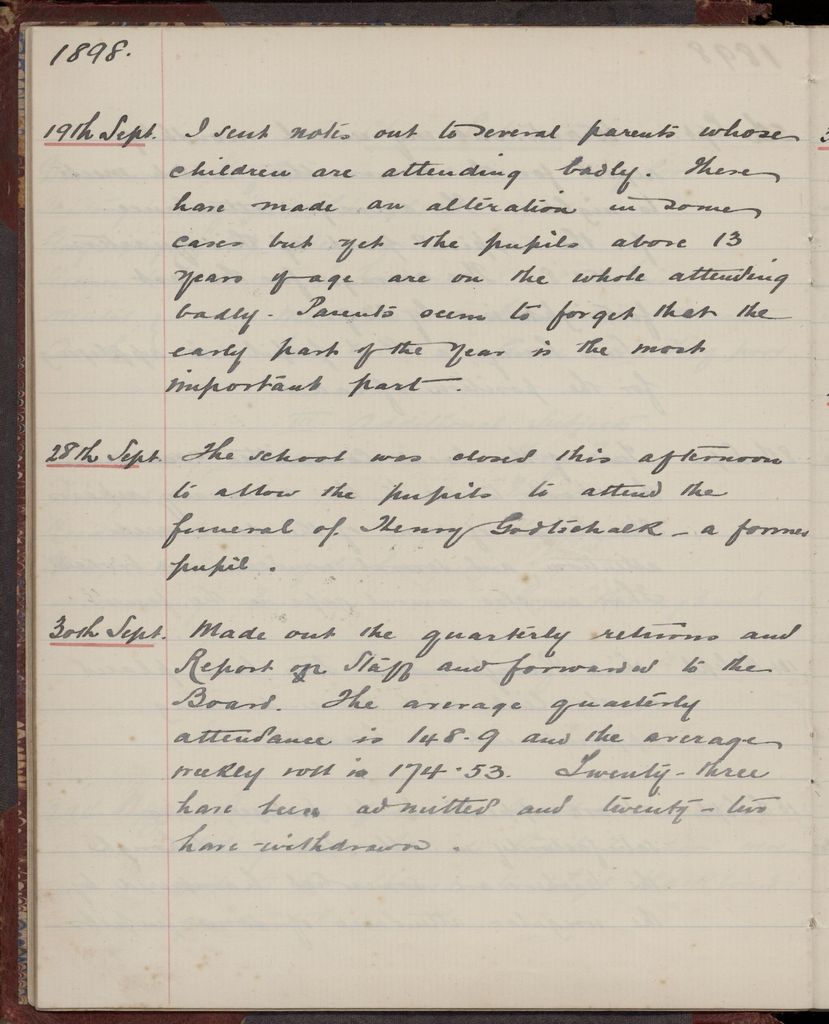 1898.
19th Sept. I sent notes out to several parents whose
children are attending badly. These
have made an alteration in some
cases but yet the pupils above 13
years of age are on the whole attending
badly. Parents seem to forget that the
early part of the year is the most
important part.
28th Sept. The school was closed this afternoon
to allow the pupils to attend the
funeral of Henry Godtschalk - a former
pupil.
30th Sept. Made out the quarterly returns and
Report on Staff and forwarded to the
Board. The average quarterly
attendance is 148.9 and the average
weekly roll is 174.53. Twenty-three
have been admitted and twenty-two
have withdrawn.